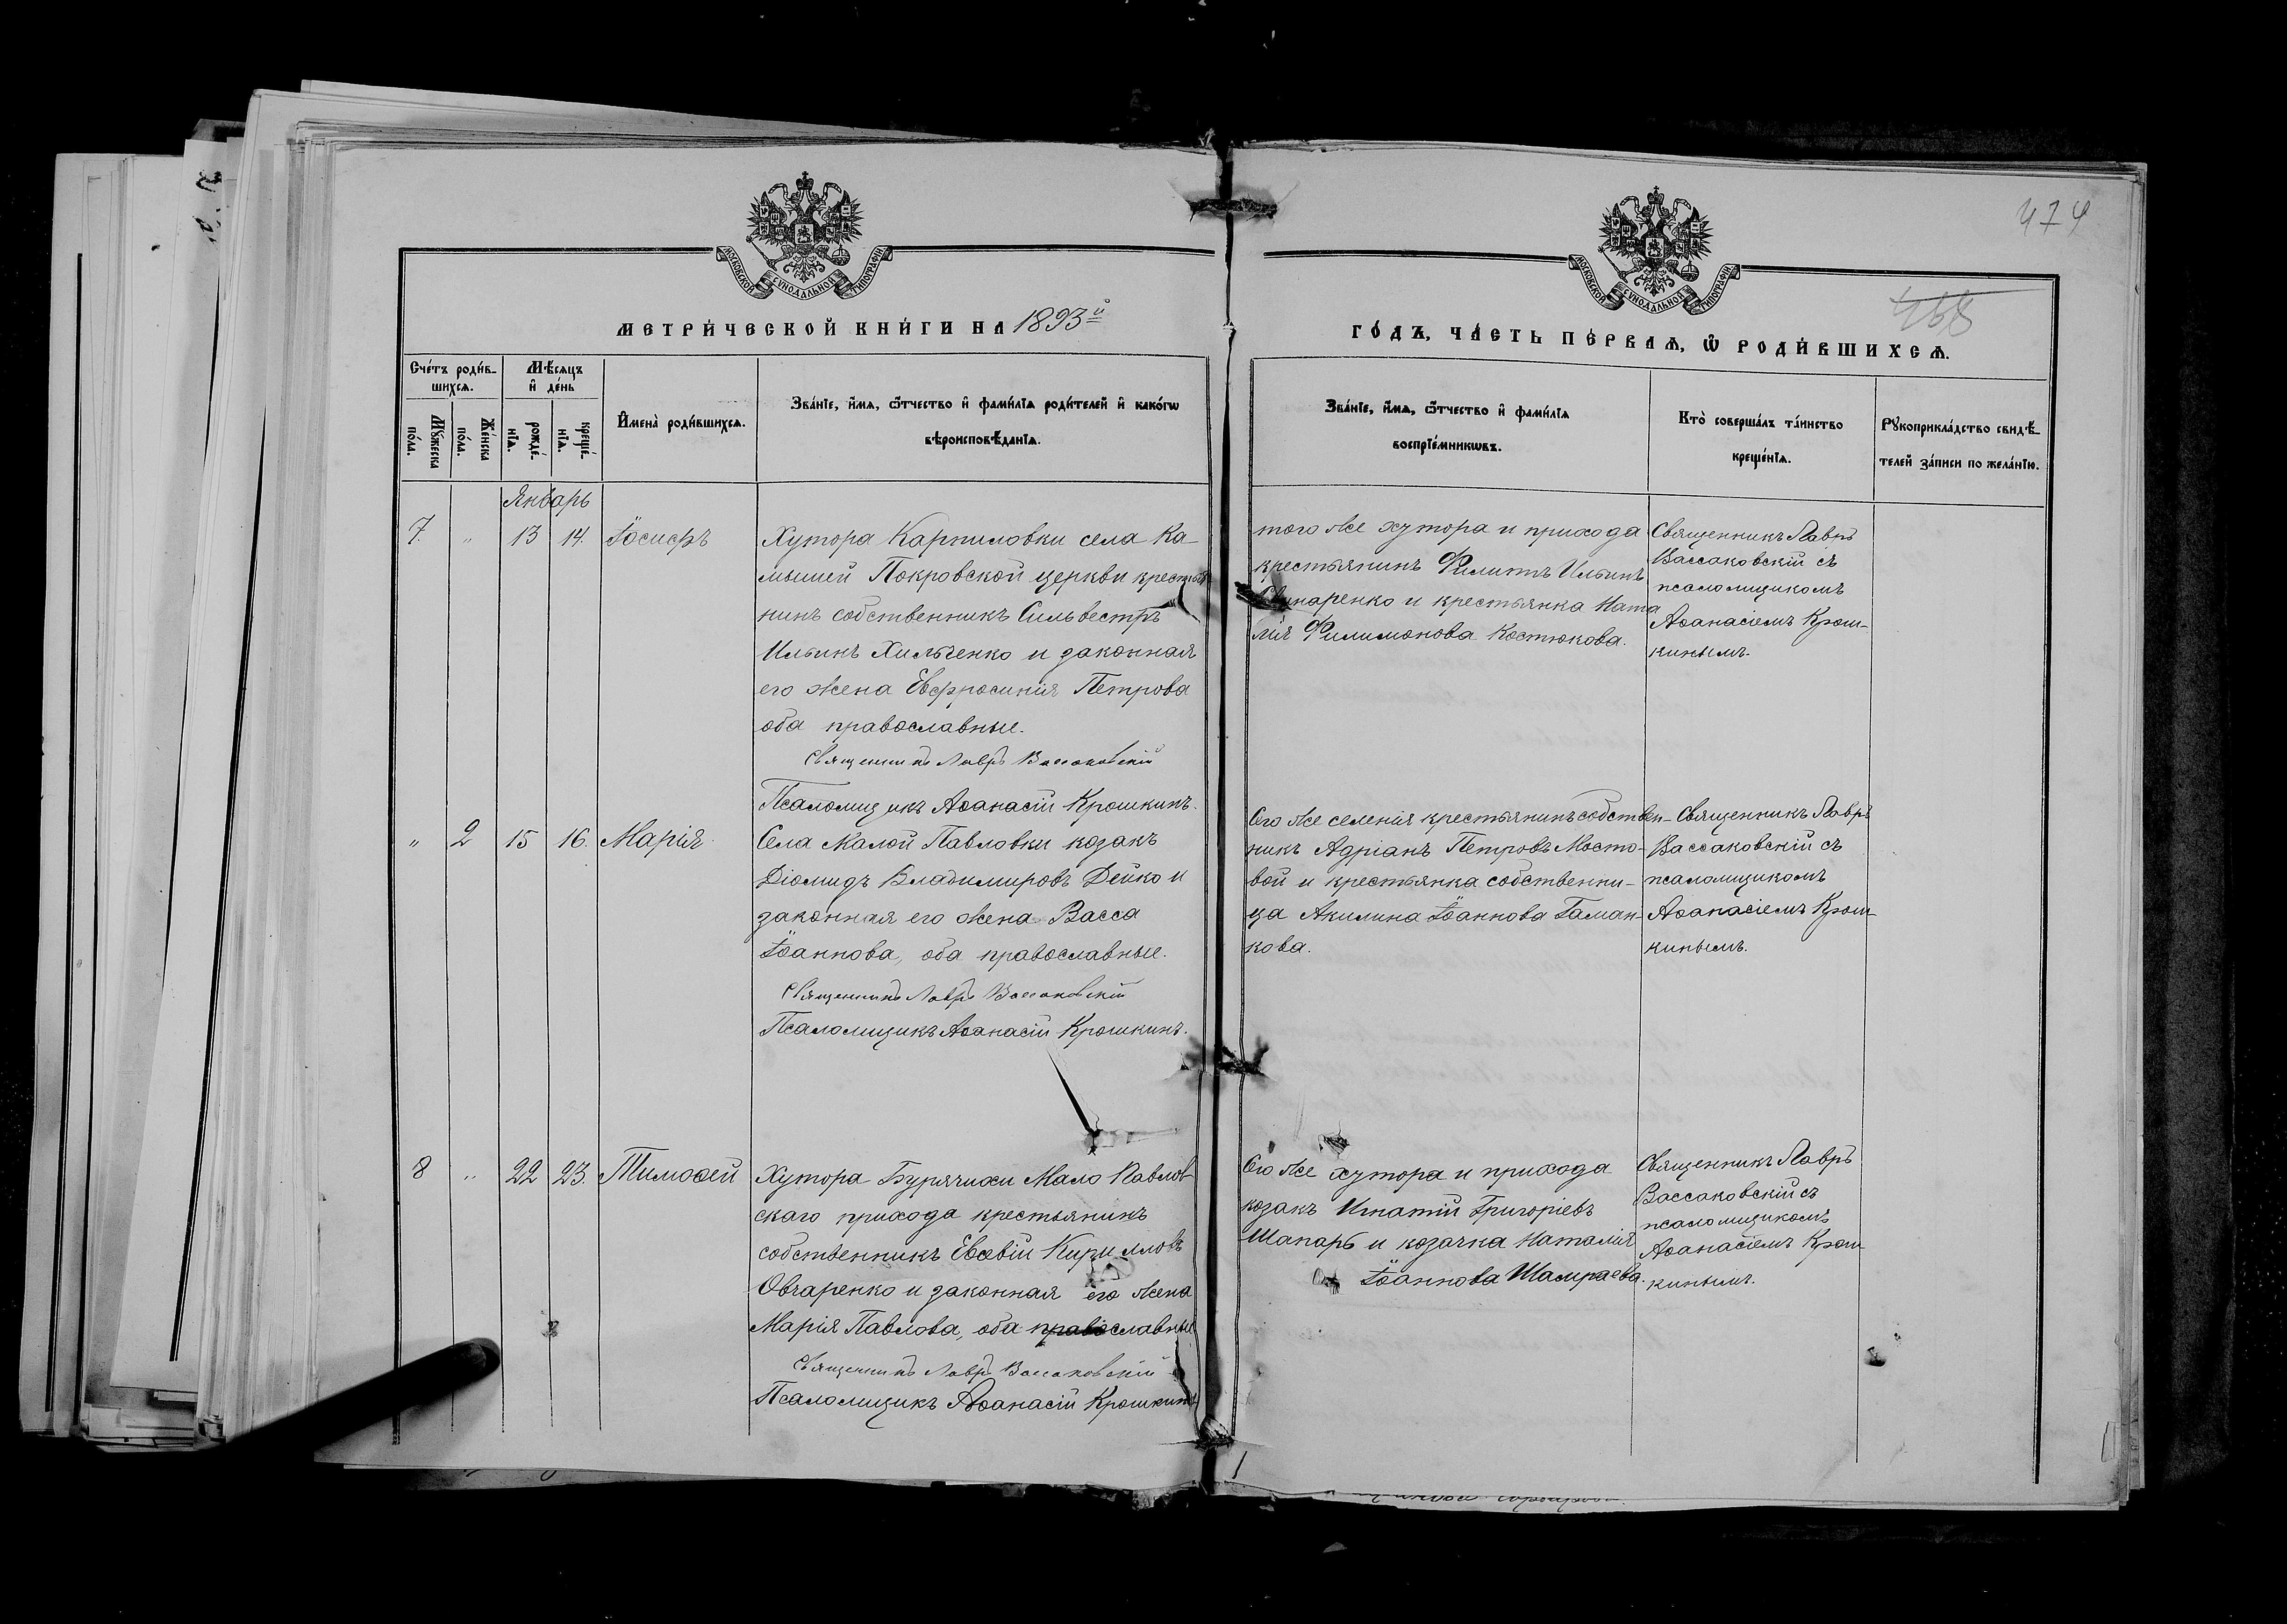 474
468
МОСКОВСКОЙ СУНОДАЛЬНОЙ ТИПОГРАФІИ
МОСКОВСКОЙ СУНОДАЛЬНОЙ ТИПОГРАФІИ
МЕТРИ́ЧЕСКОЙ КНИ́ГИ НА 1893й
ГО́ДЪ, ЧА́СТЬ ПЕ́РВАѦ, Ѿ РОДИ́ВШИХСѦ.
Сче́тъ роди́в-
шихсѧ.
Мѣ́сѧцъ
и҆ де́нь
Мꙋ́жеска
по́ла.
Же́нска
по́ла.
рожде́-
нїѧ.
креще́-
нїѧ.
И҆мена̀ роди́вшихсѧ.
Зва́нїе, и҆́мѧ, ѻ҆́тчество и҆ фами́лїѧ роди́телей и҆ како́гѡ
вѣроисповѣ́данїѧ.
Зва́нїе, и҆́мѧ, ѻ҆́тчество и҆ фами́лїѧ
воспрїе́мникѡвъ.
Кто̀ соверша́лъ та́инство
креще́нїѧ.
Рꙋкоприкла́дство свидѣ́-
телей за́писи по жела́нїю.
Январь
7. " 13 14. Іосифъ
Хутора Карпиловки села Ка-
мышей Покровской церкви крестья
нинъ собственникъ Сильвестръ
Ильинъ Хильченко и законная
его жена Евфросинія Петрова
оба православные.
Священникъ Лавръ Вассаковскій
Псаломщикъ Аѳанасій Крошкинъ.
того же хутора и прихода
крестьянинъ Филиппъ Ильинъ
Свинаренко и крестьянка Ната
лія Филимонова Костюкова.
Священникъ Лавръ
Вассаковскій съ
псаломщикомъ
Аѳанасіемъ Крош-
кинымъ.
" 2 15 16. Марія
Села Малой Павловки козакъ
Діомидъ Владимировъ Дейко и
законная его жена Васса
Іоаннова, оба православные.
Священникъ Лавръ Вассаковскій
Псаломщикъ Аѳанасій Крошкинъ.
Сего же селенія крестьянинъ собствен-
никъ Адріанъ Петровъ Мосто-
вой и крестьянка собственни-
ца Акилина Іоаннова Гаман-
кова.
Священникъ Лавръ
Вассаковскій съ
псаломщикомъ
Аѳанасіемъ Крош-
кинымъ.
8 " 22 23. Тимоѳей
Хутора Бурячихи Мало Павлов-
скаго прихода крестьянинъ
собственникъ Евсевій Кирилловъ
Овчаренко и законная его жена
Марія Павлова, оба православные
Священникъ Лавръ Вассаковскій
Псаломщикъ Аѳанасій Крошкинъ
Сего же хутора и прихода
козакъ Игнатій Григоріевъ
Шапарь и козачка Наталія
Іоаннова Шамраева.
Священникъ Лавръ
Вассаковскій съ
псаломщикомъ
Аѳанасіемъ Крош-
кинымъ.